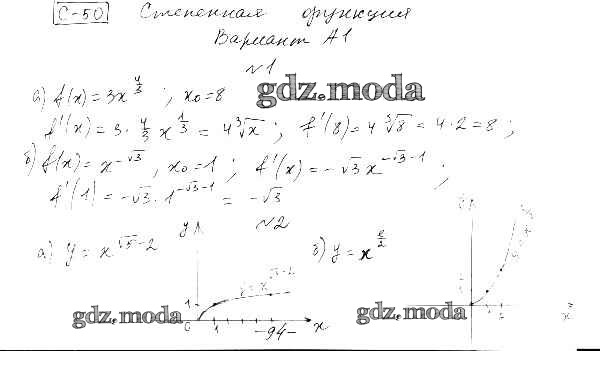 С-50 Степенная функция
Вариант А1
№1
а) f(x) = 3x^{4/3} ; x₀ = 8
gdz.moda
f'(x) = 3 · 4/3 x^{1/3} = 4∛x ; f'(8) = 4∛8 = 4 · 2 = 8 ;
б) f(x) = x^{-√3} , x₀ = 1 ; f'(x) = -√3 x^{-√3-1} ;
f'(1) = -√3 · 1^{-√3-1} = -√3
№2
а) y = x^{√5-2}
y
1
0 1 x
б) y = x^{e/2}
gdz.moda
-94-
gdz.moda